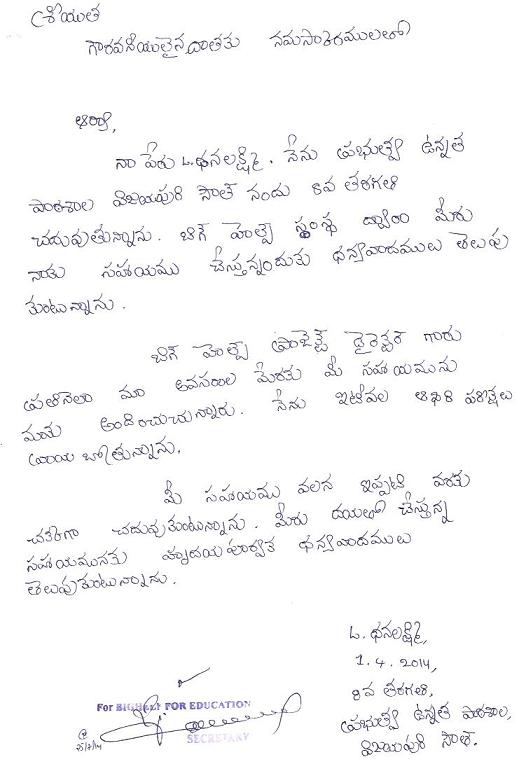 శ్రీయుత
గౌరవనీయులైన దాతకు నమస్కారములతో
ఆర్యా,
నా పేరు L. ధనలక్ష్మి. నేను ప్రభుత్వ ఉన్నత
పాఠశాల విజయపురి సౌత్ నందు 8వ తరగతి
చదువుతున్నాను. బిగ్ హెల్ప్ స్వంస్థ ద్వారా మీరు
నాకు సహాయము చేస్తున్నందుకు ధన్యవాదములు తెలుపు
కుంటున్నాను.
బిగ్ హెల్ప్ ప్రాజెక్ట్ డైరెక్టర్ గారు
ప్రతినెలా మా అవసరాల మేరకు మీ సహాయమును
మాకు అందించుచున్నారు. నేను ఇటీవల ఆఖరి పరీక్షలు
వ్రాయబోతున్నాను.
మీ సహాయము వలన ఇప్పటి వరకు
చక్కగా చదువుకుంటున్నాను. మీరు దయతో చేస్తున్న
సహాయమునకు హృదయపూర్వక ధన్యవాదములు
తెలుపుకుంటున్నాను.
L. ధనలక్ష్మి,
1.4.2014,
8వ తరగతి,
ప్రభుత్వ ఉన్నత పాఠశాల,
విజయపురి సౌత్.
For BIGHELP FOR EDUCATION
SECRETARY
25/7/14